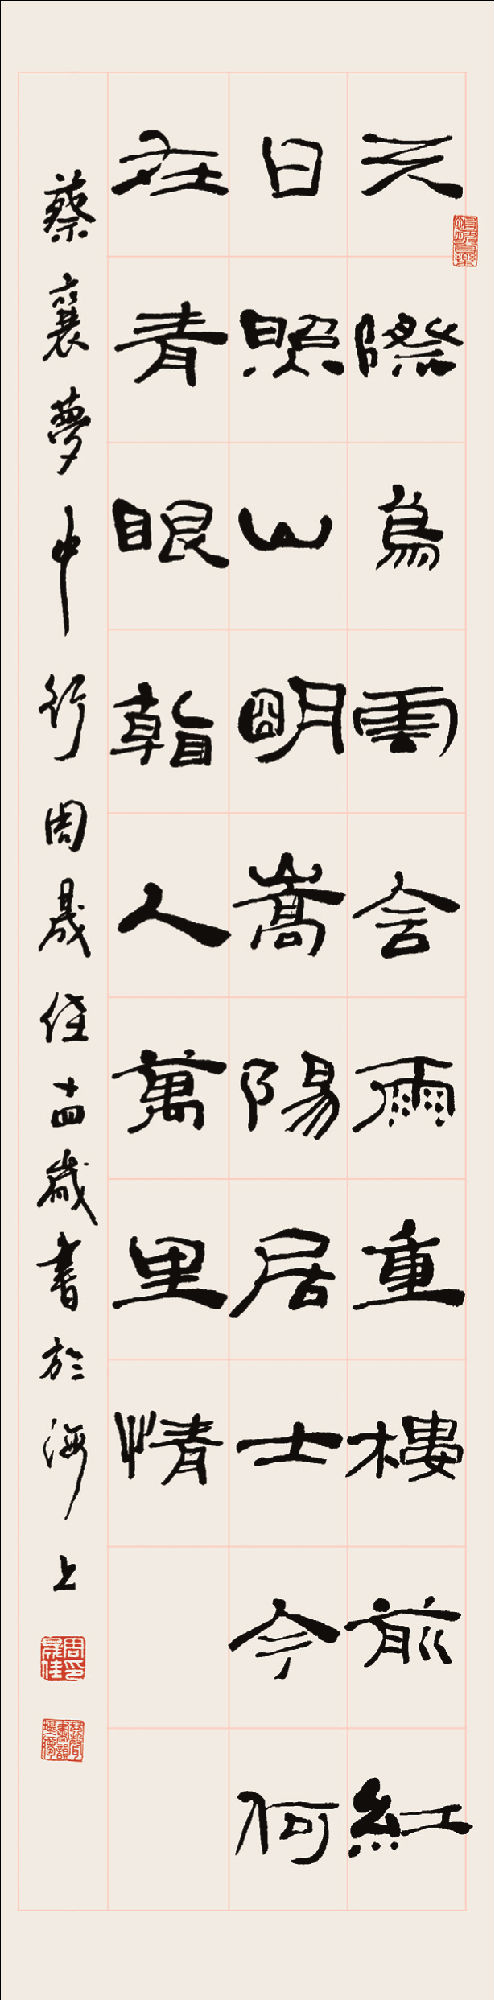 天際烏雲含雨重樓前紅
日照山明嵩陽居士今何
在青眼看人萬里情
蔡襄夢中行周晟佳十四歲書於海上
周印晟佳